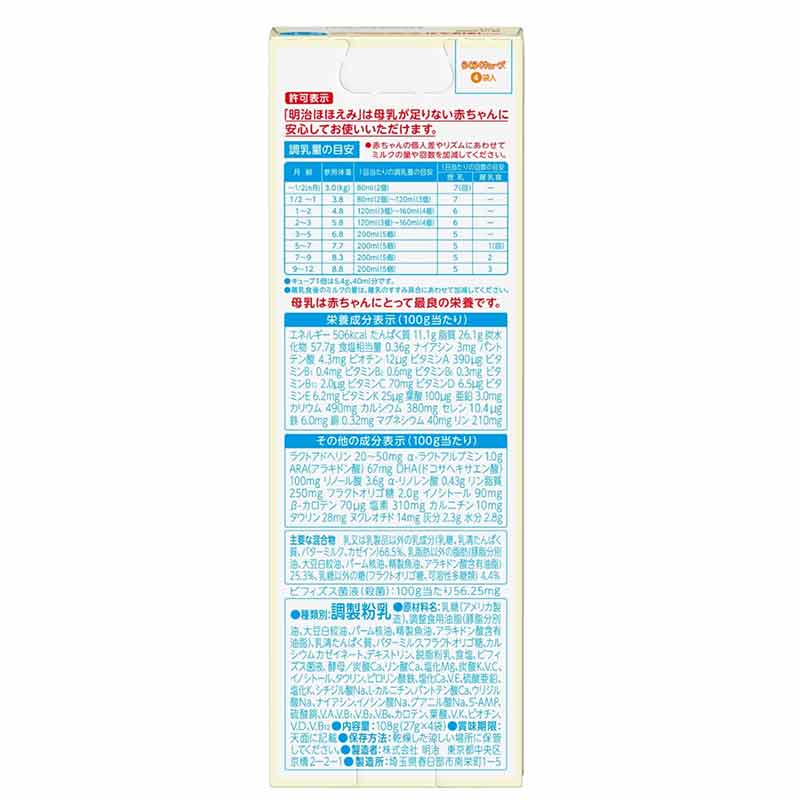 らくらくキューブ
4袋入
許可表示
「明治ほほえみ」は母乳が足りない赤ちゃんに
安心してお使いいただけます。
調乳量の目安 ●赤ちゃんの個人差やリズムにあわせて
ミルクの量や回数を加減してください。
月齢 参考体重 1回当たりの調乳量の目安 1日当たりの回数の目安
授乳 離乳食
~1/2(ヵ月) 3.0(kg) 80ml(2個) 7(回) ー
1/2~1 3.8 80ml(2個)~120ml(3個) 7 ー
1~2 4.8 120ml(3個)~160ml(4個) 6 ー
2~3 5.8 120ml(3個)~160ml(4個) 6 ー
3~5 6.8 200ml(5個) 5 ー
5~7 7.7 200ml(5個) 5 1(回)
7~9 8.3 200ml(5個) 5 2
9~12 8.8 200ml(5個) 5 3
●キューブ1個は5.4g、40ml分です。
●離乳食後のミルクの量は、離乳のすすみ具合にあわせて加減してください。
母乳は赤ちゃんにとって最良の栄養です。
栄養成分表示(100g当たり)
エネルギー 506kcal たんぱく質 11.1g 脂質 26.1g 炭水
化物 57.7g 食塩相当量 0.36g ナイアシン 3mg パント
テン酸 4.3mg ビオチン 12μg ビタミンA 390μg ビタ
ミンB₁ 0.4mg ビタミンB₂ 0.6mg ビタミンB₆ 0.3mg ビタ
ミンB₁₂ 2.0μg ビタミンC 70mg ビタミンD 6.5μg ビタ
ミンE 6.2mg ビタミンK 25μg 葉酸 100μg 亜鉛 3.0mg
カリウム 490mg カルシウム 380mg セレン 10.4μg
鉄 6.0mg 銅 0.32mg マグネシウム 40mg リン 210mg
その他の成分表示(100g当たり)
ラクトアドヘリン 20~50mg α-ラクトアルブミン 1.0g
ARA(アラキドン酸) 67mg DHA(ドコサヘキサエン酸)
100mg リノール酸 3.6g α-リノレン酸 0.43g リン脂質
250mg フラクトオリゴ糖 2.0g イノシトール 90mg
β-カロテン 70μg 塩素 310mg カルニチン 10mg
タウリン 28mg ヌクレオチド 14mg 灰分 2.3g 水分 2.8g
主要な混合物 乳又は乳製品以外の乳成分(乳糖、乳清たんぱく
質、バターミルク、カゼイン)68.5%、乳脂肪以外の脂肪(豚脂分別
油、大豆白絞油、パーム核油、精製魚油、アラキドン酸含有油脂)
25.3%、乳糖以外の糖(フラクトオリゴ糖、可溶性多糖類) 4.4%
ビフィズス菌液(殺菌):100g当たり56.25mg
●種類別:調製粉乳 ●原材料名:乳糖(アメリカ製
造)、調整食用油脂(豚脂分別
油、大豆白絞油、パーム核油、精製魚油、アラキドン酸含有
油脂)、乳清たんぱく質、バターミルク、フラクトオリゴ糖、カル
シウムカゼイネート、デキストリン、脱脂粉乳、食塩、ビフィ
ズス菌液、酵母/炭酸Ca、リン酸Ca、塩化Mg、炭酸K、V.C、
イノシトール、タウリン、ピロリン酸鉄、塩化Ca、V.E、硫酸亜鉛、
塩化K、シチジル酸Na、L-カルニチン、パントテン酸Ca、ウリジル
酸Na、ナイアシン、イノシン酸Na、グアニル酸Na、5'-AMP、
硫酸銅、V.A、V.B₁、V.B₂、V.B₆、カロテン、葉酸、V.K、ビオチン、
V.D、V.B₁₂ ●内容量:108g(27g×4袋) ●賞味期限:
天面に記載 ●保存方法:乾燥した涼しい場所に保管
してください。●製造者:株式会社 明治 東京都中央区
京橋2-2-1 ●製造所:埼玉県春日部市南栄町1-5